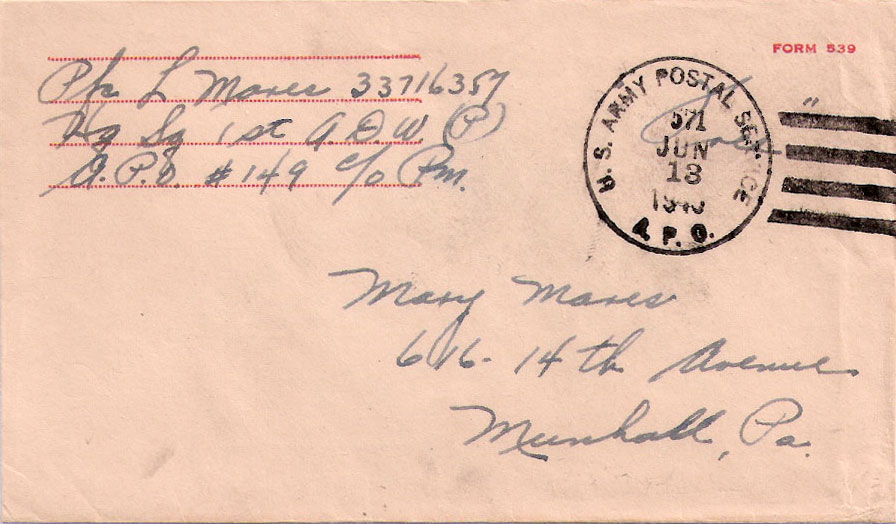 FORM 539
Pfc L Mares 33716357
Hq Sq 1st A.D.W. (P)
A.P.O. #149 c/o Pm.
U. S. ARMY POSTAL SERVICE
571
JUN
13
1945
A. P. O.
Free
Mary Mares
616-14th Avenue
Munhall, Pa.